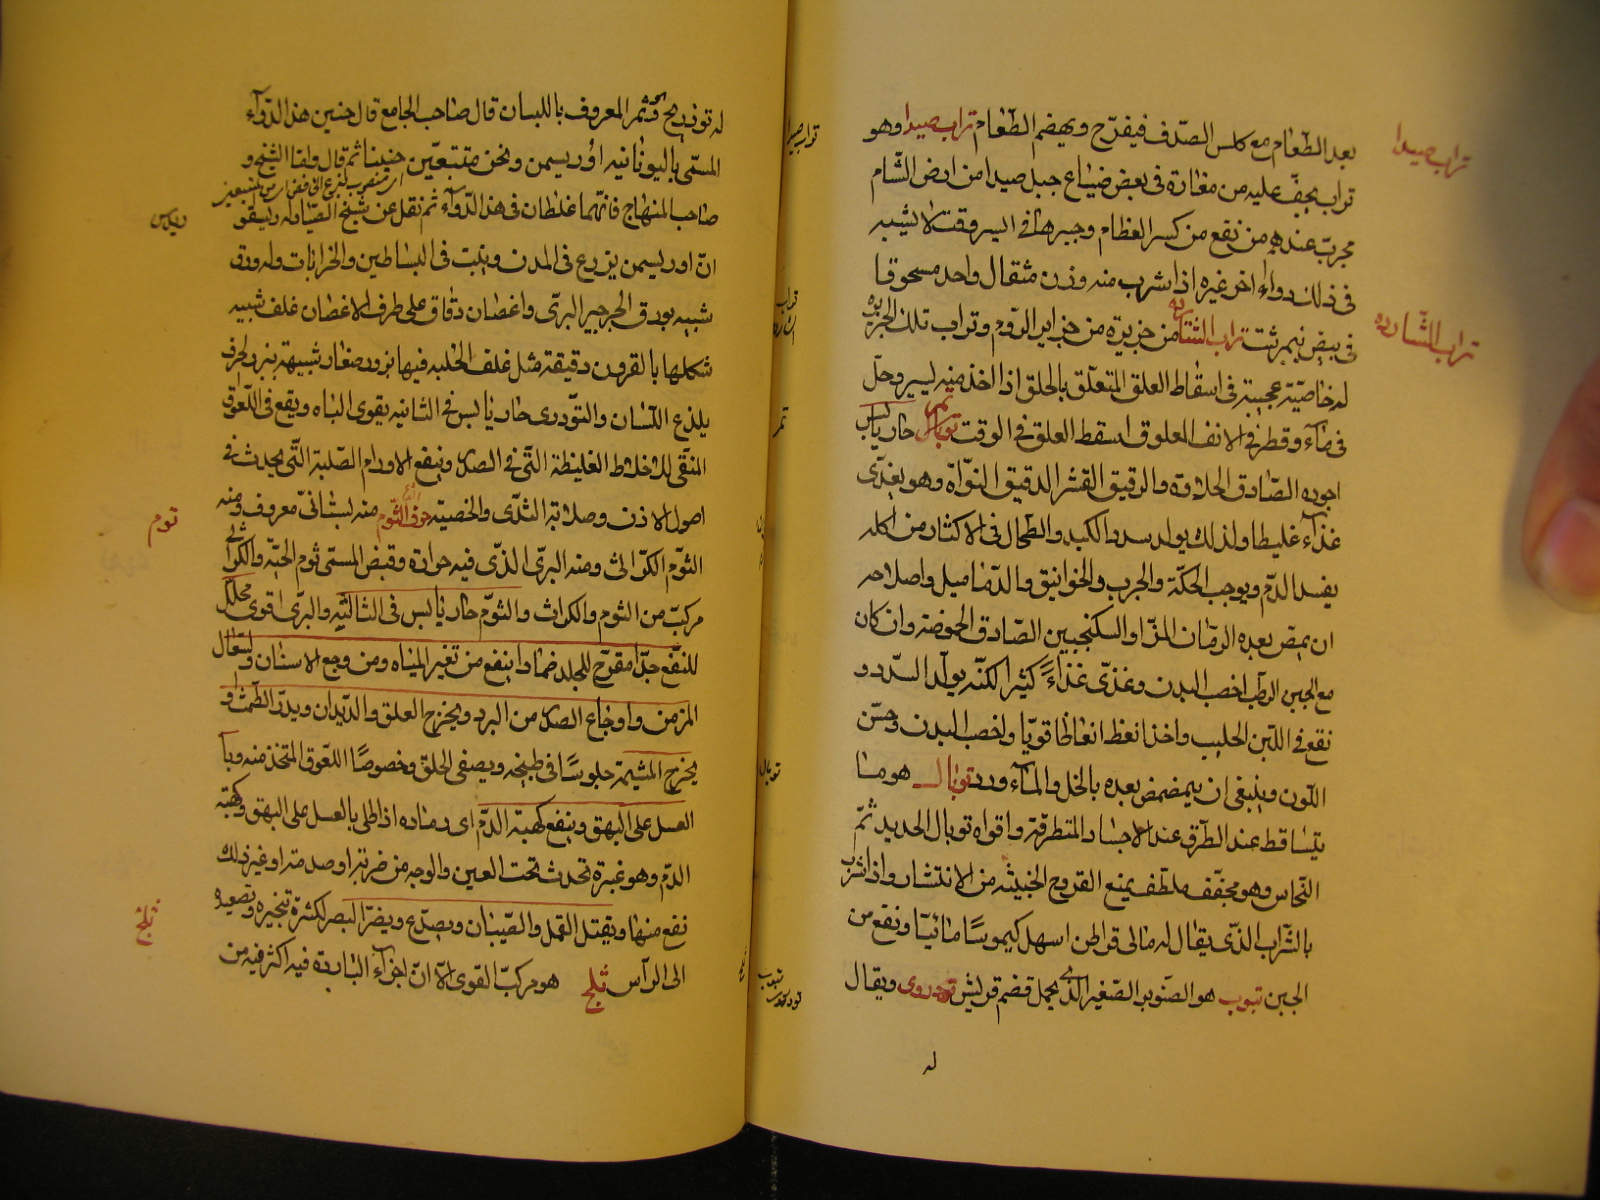 بعد الطعام مع كلس الصدف فيفرح ويهضم الطعام تراب صيدا وهو
تراب صيدا
تراب يجف عليه من مغارة فى بعض ضياع جبل صيدا من ارض الشام
مجرب عندهم من نفع من كسر العظام وجبرها فى اسرع وقت لا يشبه
فى ذلك دواء اخر غيره اذا شرب منه وزن مثقال واحد مسحوقا
فى بيض نيمرشت تراب الشاردة من جزيرة من جزاير الروم وتراب تلك الجزيرة
تراب الشاردة
له خاصية عجيبة فى اسقاط العلق المتعلق بالحلق اذا اخذ منه يسير وحل
فى ماء وقطر فى الانف العلوق اسقط العلق فى الوقت تمر حار يابس
اجوده الصادق الحلاوة والرقيق القشر الدقيق النواة وهو يغذى
غذاء غليظا ولذلك يولد سدد الكبد والطحال فى الاكثار من اكله
يفسد الدم ويوجب الحكة والجرب والخوانيق والدماميل واصلاحه
ان يمص بعده الرمان المز او السكنجبين الصادق الحموضة وان كان
مع الجبن الرطب اخصب البدن وغذى غذاءً كثيرا لكنه يولد السدد و
نقع فى اللبن الحليب واخذ انعظ انعاظا قويا واخصب البدن وحسن
اللون وينبغى ان يتمضمض بعده بالخل والماء ورد توبال هو ما
يتساقط عند الطرق عند الاجساد المتطرقة واقواه توبال الحديد ثم
النحاس وهو مجفف ملطف يمنع القروح الخبيثة من الانتشار واذا شرب
بالشراب الذى يقال له مالى قراطن اسهل كيموسًا مائيا ونفع من
الجبن تنوب هو الصنوبر الصغير الذى يحمل قضم قريش تودروى ويقال
له
له تودريج وثمر المعروف باللبسان قال صاحب الجامع قال حنين هذا الدواء
المسمى باليونانيه اوريسمن ونحن متبعين حنينا ثم قال ولقا الشيخ و
صاحب المنهاج فانهما غلطان فى هذا الدواء ثم نقل عن شيخ الصياوله
ان اوريسمن يزرع فى المدن وينبت فى البساطين والخرابات وله ورق
شبيه بورق الجرجير البرى واغصان دقاق على طرف الاغصان غلف شبيه
شكلها بالقرون دقيقة مثل غلف الحلبه فيها بزور صغار شبيهة ببزر الحرف
يلذع اللسان والتودرى حار يابس فى الثانيه يقوى الباه ويقع فى اللعوق
المنقى للاخلاط الغليظة التى فى الصدر وينفع الاورام الصلبة التى يحدث فى
اصول الاذن وصلابة الثدى والخصية حرف الثاء الثوم منه بستانى معروف ومنه
ثوم
الثوم الكراثى ومنه البرى الذى فيه حرارة وقبض المسمى ثوم الحية والكراثى
مركب من الثوم والكراث والثوم حار يابس فى الثالثيه والبرى اقوى محلل
للنفع جدا مقرح للجلد ضمادا ينفع من تغير المياه ومن وجع الاسنان والسعال
المزمن واوجاع الصدر من البرد ويخرج العلق والديدان ويدر الطمث و
يخرج المشيمة جلوسًا فى طبيخه ويصفى الحلق وخصوصًا اللعوق المتخذ منه وبا
العسل على البهق وينفع كهبة الدم اى رماده اذا طلى بالعسل على البهق وكهبة
الدم وهو غبرة تحدث تحت العين والوجه من ضربة او صدمة او غير ذلك
نفع منها ويقتل القمل والصيبان ويصدع ويضر البصر لكثرة تبخيره وتصعيده
الى الرأس ثلج هو مركب القوى الا ان اجزاء الباردة فيه اكثر فيه من
ثلج